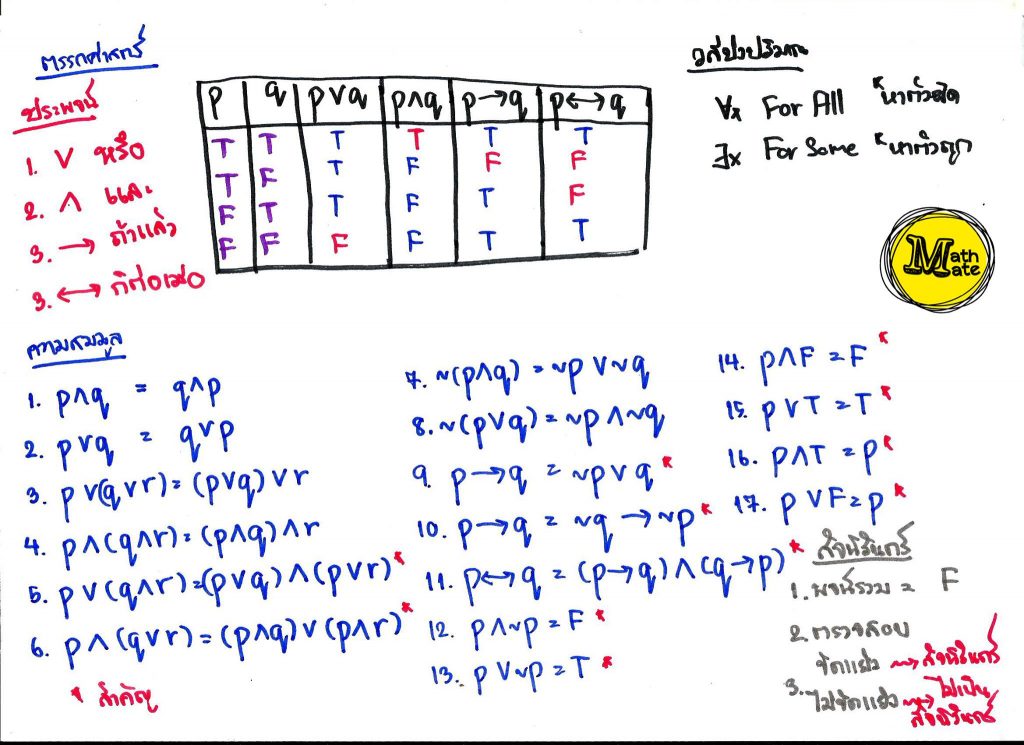 ตรรกศาสตร์
ประพจน์
1. ∨ หรือ
2. ∧ และ
3. → ถ้าแล้ว
3. ↔ ก็ต่อเมื่อ
p q p∨q p∧q p→q p↔q
T T T T T T
T F T F F F
F T T F T F
F F F F T T
วลีบ่งปริมาณ
∀x For All หาตัวผิด
∃x For Some หาตัวถูก
Math Mate
ความสมมูล
1. p∧q = q∧p
2. p∨q = q∨p
3. p∨(q∨r) = (p∨q)∨r
4. p∧(q∧r) = (p∧q)∧r
5. p∨(q∧r) = (p∨q)∧(p∨r)*
6. p∧(q∨r) = (p∧q)∨(p∧r)*
* สำคัญ
7. ~(p∧q) = ~p∨~q
8. ~(p∨q) = ~p∧~q
9. p→q = ~p∨q*
10. p→q = ~q→~p*
11. p↔q = (p→q)∧(q→p)*
12. p∧~p = F*
13. p∨~p = T*
14. p∧F = F*
15. p∨T = T*
16. p∧T = p*
17. p∨F = p*
สัจนิรันดร์
1. พจน์รวม = F
2. ตรวจสอบ
ขัดแย้ง → สัจนิรันดร์
3. ไม่ขัดแย้ง → ไม่เป็น
สัจนิรันดร์